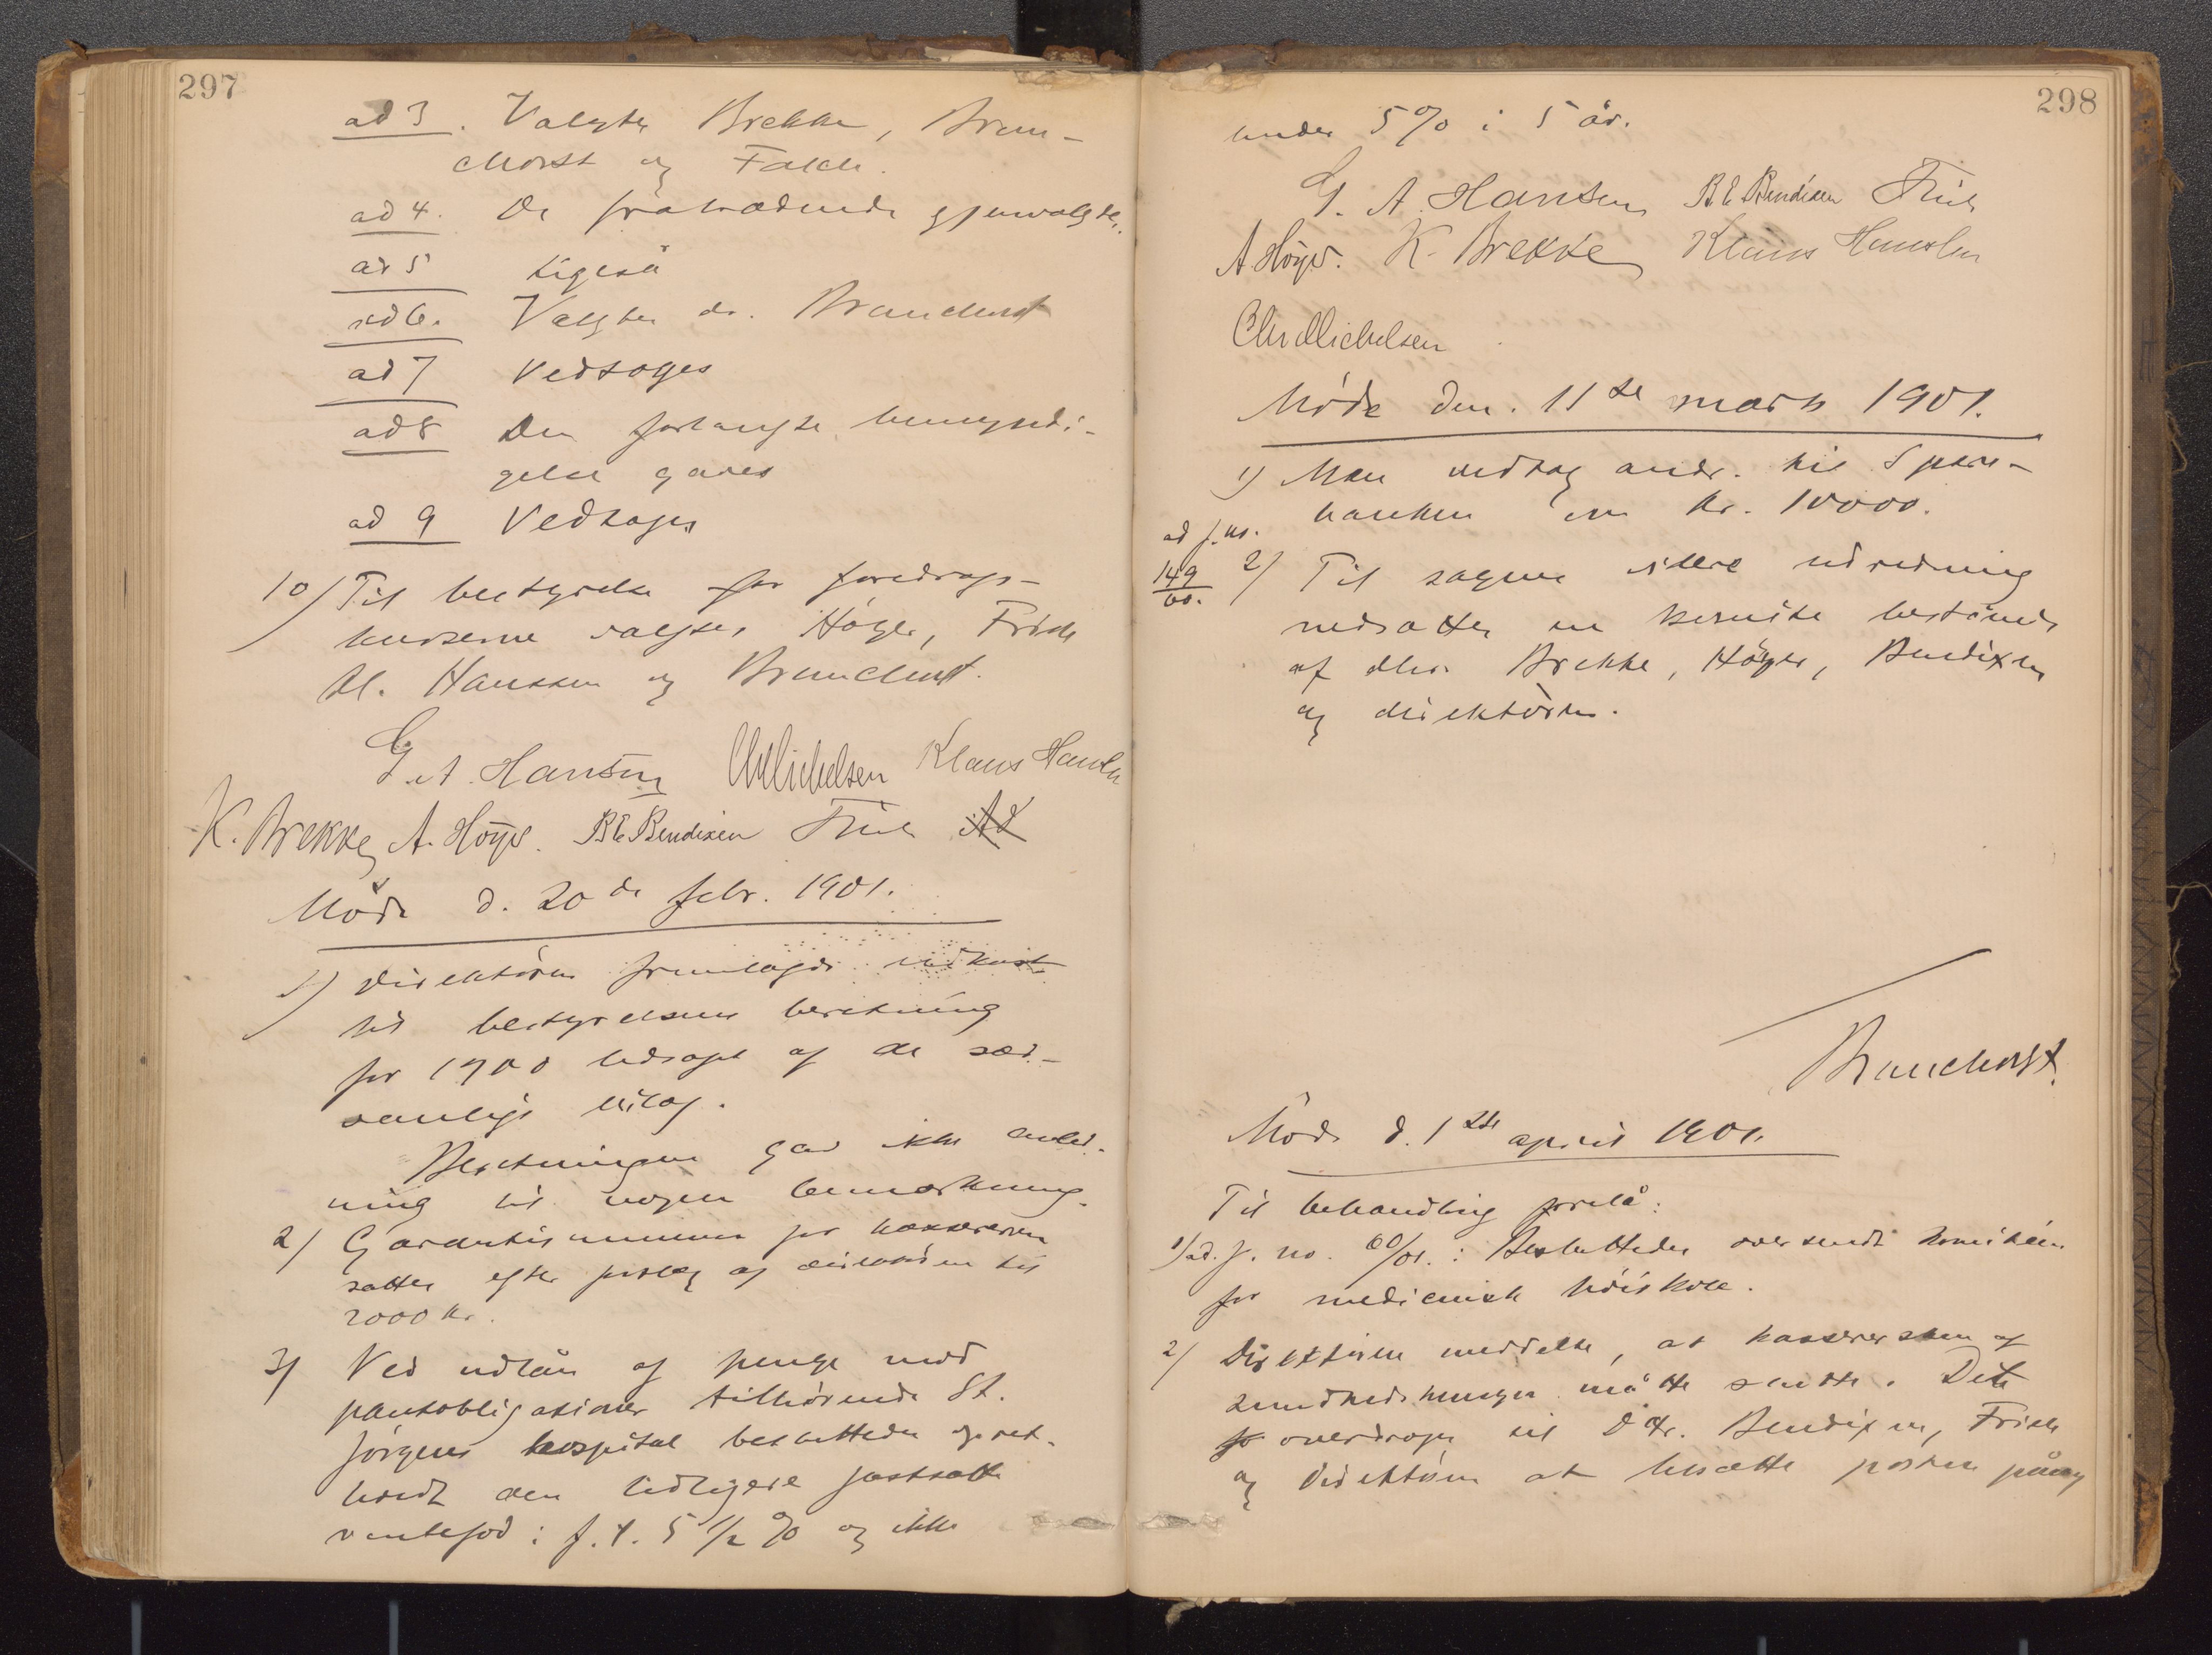 297
ad 3. Valgtes Brekke, Brun-
chorst og Falck.
ad 4. De fratrædende gjenvalgtes.
ad 5 Ligeså
ad 6. Valgtes dr. Brunchorst
ad 7 Vedtoges
ad 8 Den forlangte bemyndi-
gelse gaves
ad 9 Vedtoges
10) Til bestyrelse for foredrags-
kurserne valgtes Höyer, Friele
Kl. Hanssen og Brunchorst.
G. A. Hansen Chr Michelsen Klaus Hanssen
K. Brekke A. Höyer. B E Bendixen Friele
Möde d. 20de febr. 1901.
1) Direktören fremlagde udkast
til bestyrelsens beretning
for 1900 ledsaget af de sæd-
vanlige bilag.
Beretningen gav ikke anled-
ning til nogen bemærkning.
2) Garantisummen for kassereren
sattes efter forslag af direktören til
2000 kr.
3) Ved udlån af penge mod
pantobligationer tilhörende St.
Jörgens hospital besluttedes opret-
holdt den tidligere fastsatte
rentefod: f. t. 5 1/2 % og ikke
298
under 5% i 5 år.
G. A. Hansen B E Bendixen Friele
A Höyer. K. Brekke Klaus Hanssen
Chr Michelsen
Möde den. 11te marts 1901.
1) Man vedtog andr. til Spare-
banken om kr. 10000.
ad j. no.
149/00.
2) Til sagens videre udredning
nedsattes en komite bestående
af dhrr. Brekke, Höyer, Bendixen
og direktören.
Brunchorst.
Möde d. 1ste april 1901.
Til behandling forelå:
1) ad. j. no. 60/01.: Besluttedes oversendt komitéen
for medicinsk höiskole.
2) Direktören meddelte, at kasserersken og
måtte slutte. Det
overdroges til Dhr. Bendixen, Friele
og Direktören at besætte posten påny